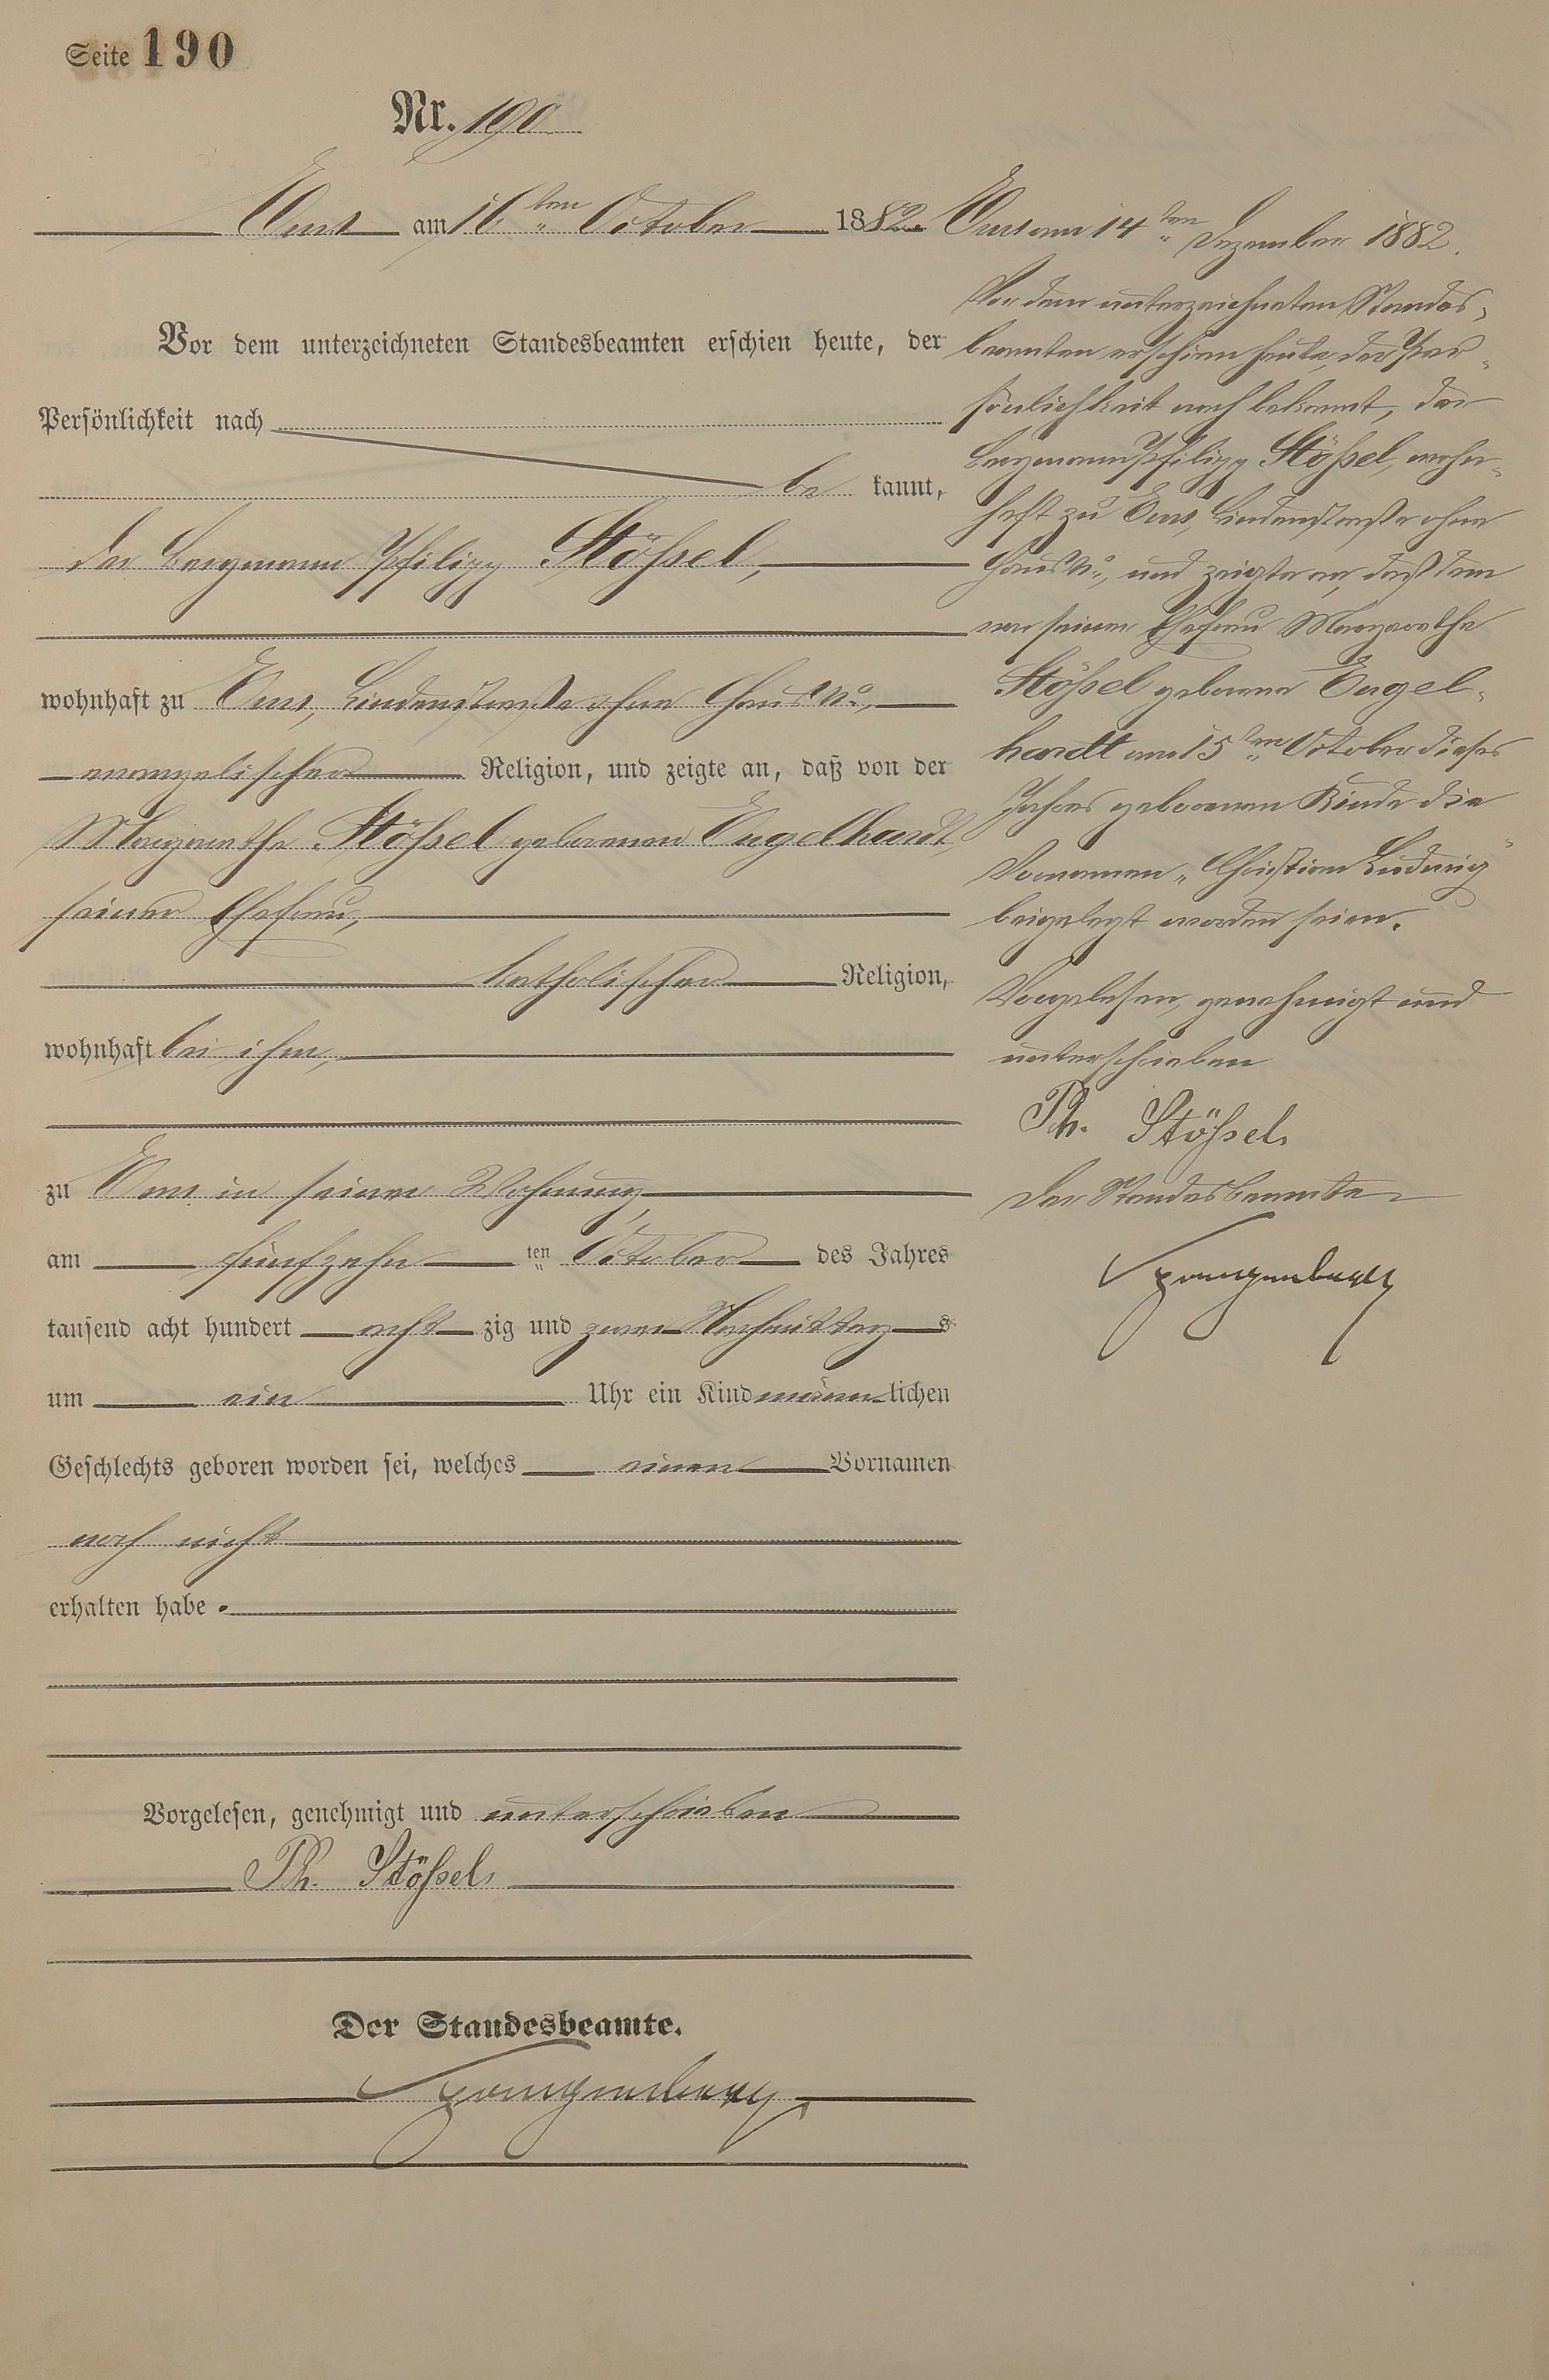 Seite 190
Nr. 190
Ems am 16ten October 1882.
Vor dem unterzeichneten Standesbeamten erschien heute, der
Persönlichkeit nach
be kannt,
der Bergmann Philipp Stößel,
wohnhaft zu Ems, Lindenstraße ohne Haus No.,
evangelischer Religion, und zeigte an, daß von der
Margarethe Stößel geborenen Engelhardt,
seiner Ehefrau,
katholischer Religion,
wohnhaft bei ihm,
zu Ems in seiner Wohnung,
am fünfzehn ten October des Jahres
tausend acht hundert acht zig und zwei Nachmittag s
um ein Uhr ein Kind männ lichen
Geschlechts geboren worden sei, welches einen Vornamen
noch nicht
erhalten habe.
Vorgelesen, genehmigt und unterschrieben
Ph. Stößel
Der Standesbeamte.
Ems am 14ten Dezember 1882.
Vor dem unterzeichneten Standes-
beamten erschien heute, der Per-
sönlichkeit nach bekannt, der
Bergmann Philipp Stößel, wohn-
haft zu Ems, Lindenstraße ohne
Haus No., und zeigte an, daß dem
von seiner Ehefrau Margarethe
Stößel geborene Engel-
hardt am 15ten October dieses
Jahres geborenen Kinde die
Vornamen „Christian Ludwig"
beigelegt worden seien.
Vorgelesen, genehmigt und
unterschrieben
Ph. Stößel
Der Standesbeamte